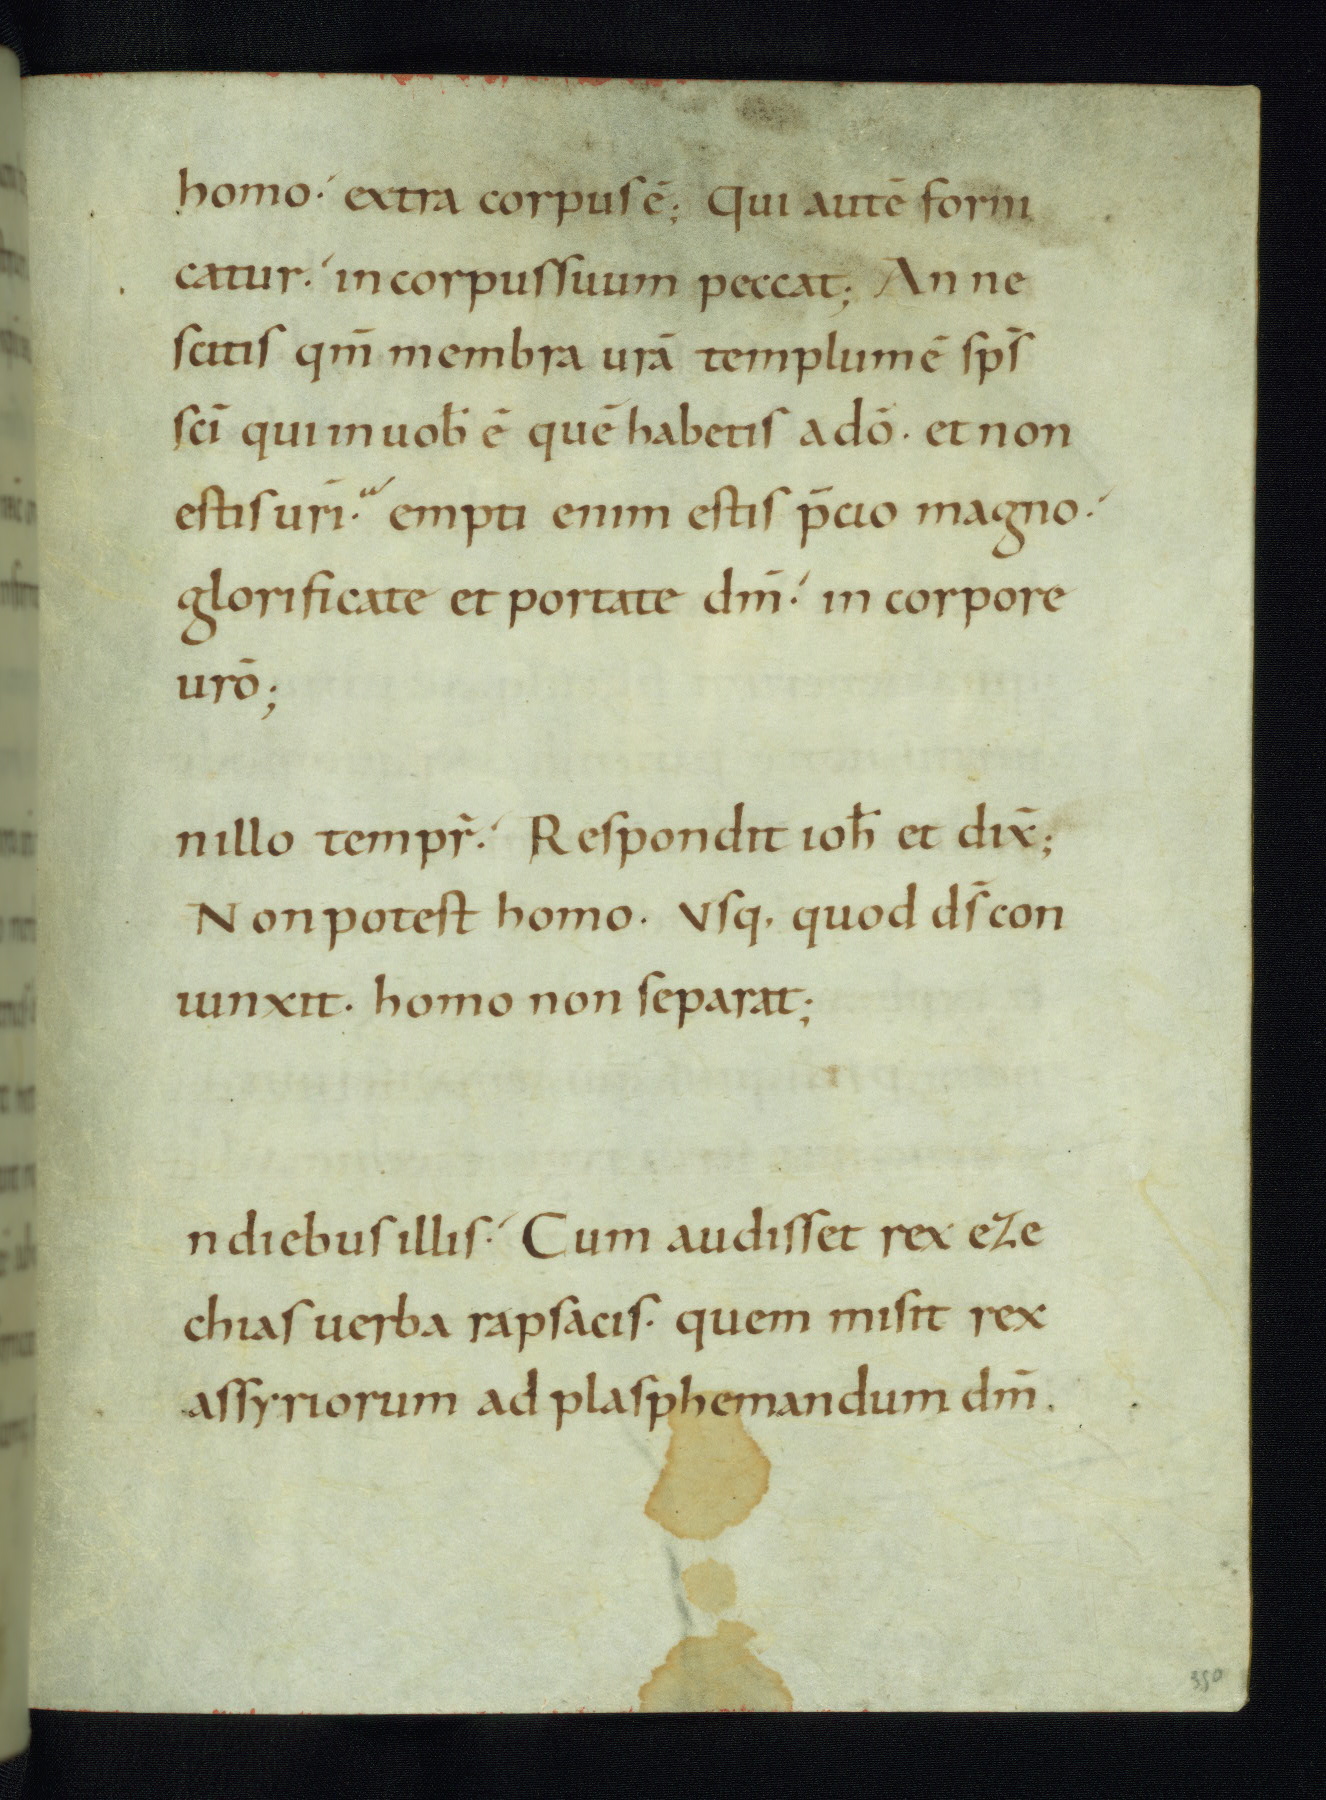 homo· extra corpus ē; Qui autē forni
catur· in corpus suum peccat; An ne
scitis qm̄ membra urā templum ē sp̄s
sc̄i qui in uob̄ ē quē habetis a dō· et non
estis urī· empti enim estis p̄cio magno·
glorificate et portate dm̄· in corpore
urō;
n illo tempr̄· Respondit ioh̄ et dix̄;
Non potest homo· Vsq· quod ds̄ con
iunxit· homo non separat;
n diebus illis· Cum audisset rex eze
chias uerba rapsacis· quem misit rex
assyriorum ad plasphemandum dm̄·
350